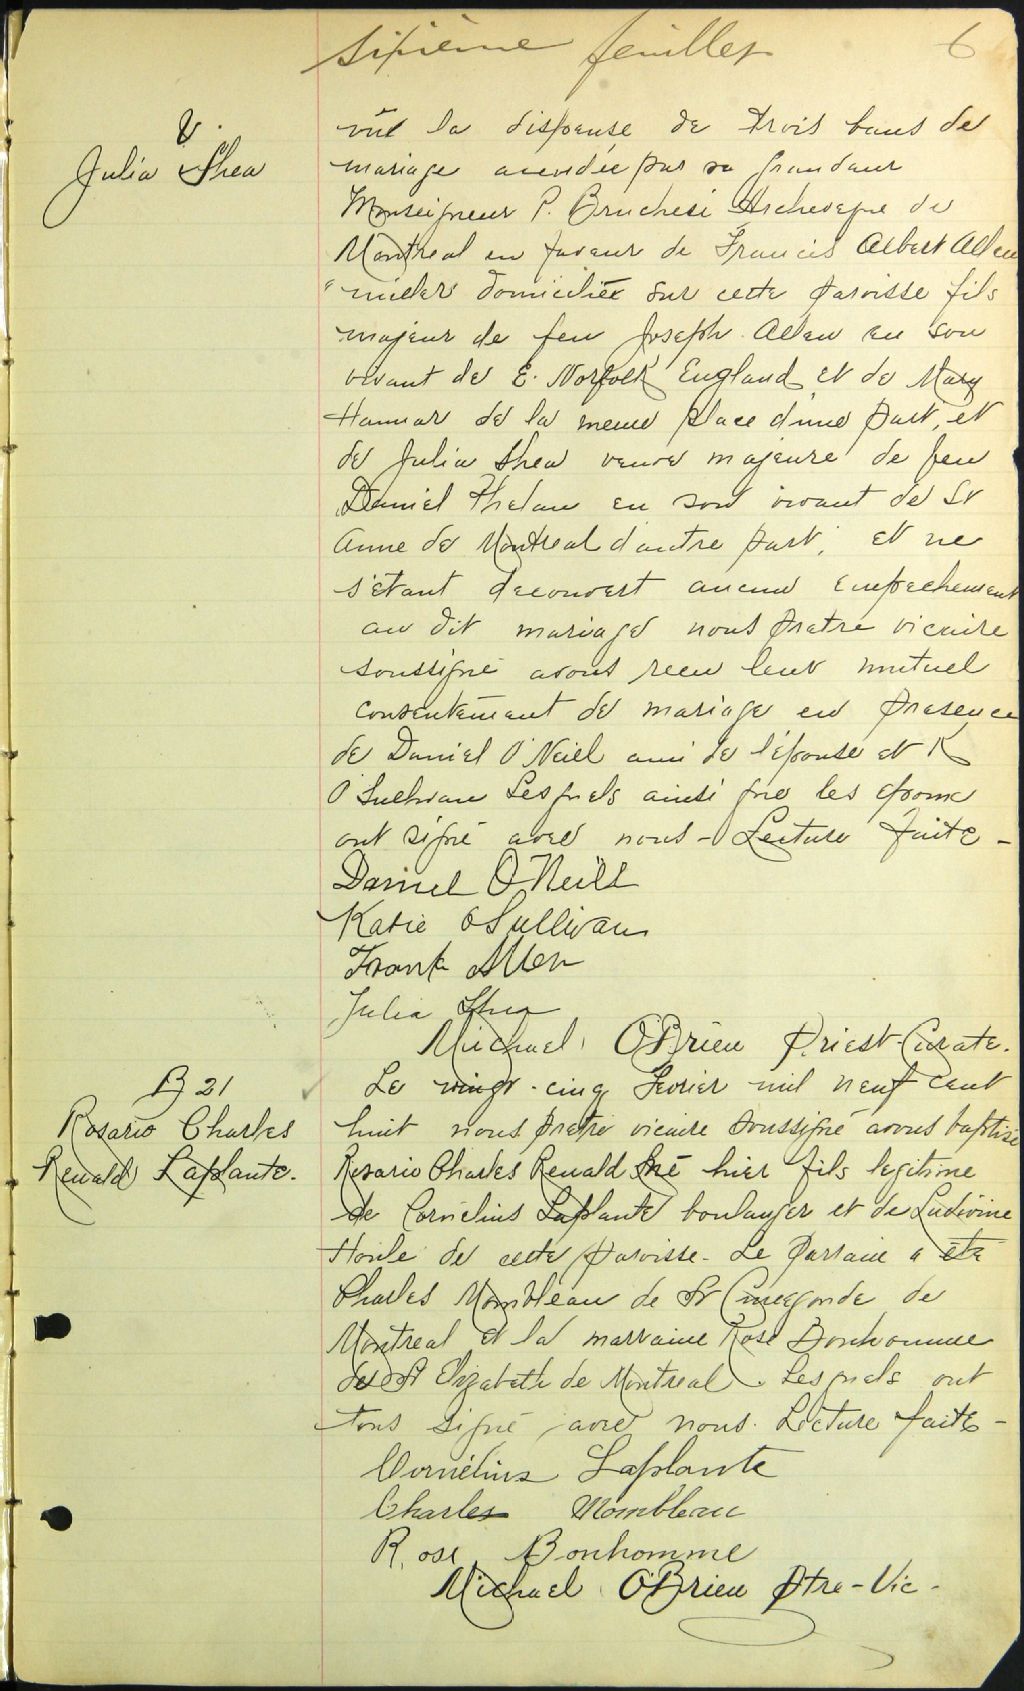 sixième feuillet 6
V.
Julia Shea
vûe la dispense de trois bans de
mariage accordée par sa grandeur
Monseigneur P. Bruchesi Archeveque de
Montreal en faveur de Francis Albert Allen
"miller" domicilié sur cette paroisse fils
majeur de feu Joseph Allen en son
vivant de E. Norfolk England et de Mary
Hannar de la meme place d'une part, et
de Julia Shea veuve majeure de feu
Daniel Phelan en son vivant de St
Anne de Montreal d'autre part, et ne
s'étant decouvert aucun empechement
au dit mariage nous pretre vicaire
soussigné avons recu leur mutuel
consentement de mariage en presence
de Daniel O'Neill ami de l'épouse et K
O'Sullivan Lesquels ainsi que les epoux
ont signé avec nous - Lecture faite -
Daniel O'Neill
Katie O'Sullivan
Frank Allen
Julia Shea
Michael O'Brien Priest-Curate.
B 21
Rosario Charles
Renald Laplante.
Le vingt-cinq Fevrier mil neuf cent
huit nous pretre vicaire soussigné avons baptisé
Rosario Charles Renald né hier fils legitime
de Cornelius Laplante boulanger et de Ludivine
Houle de cette paroisse - Le Parrain a été
Charles Mombleau de St Cunegonde de
Montreal et la marraine Rose Bonhomme
de St Elizabeth de Montreal. Lesquels ont
tous signé avec nous. Lecture faite -
Cornélius Laplante
Charles Mombleau
Rose Bonhomme
Michael O'Brien Ptre - Vic -